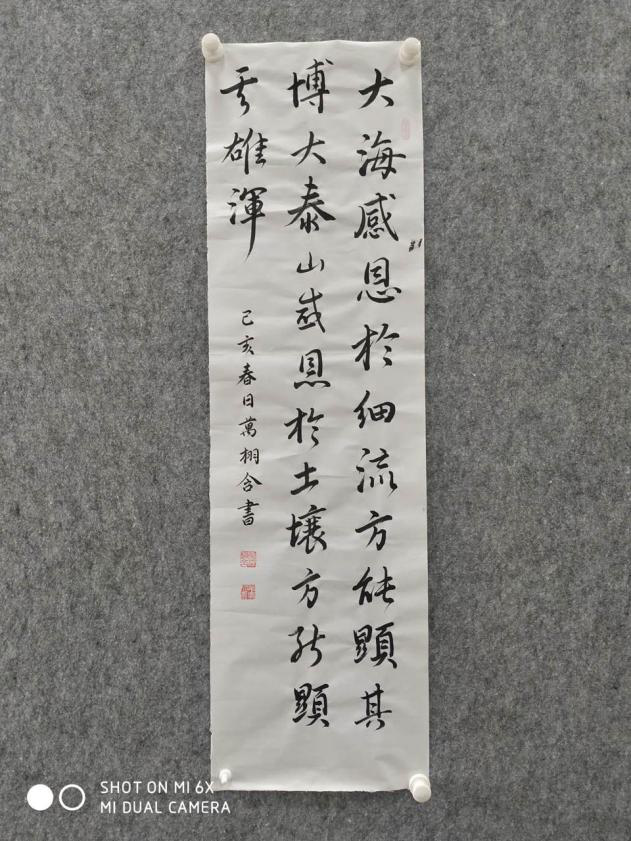 大海感恩於細流方能顯其
博大泰山感恩於土壤方能顯
其雄渾
己亥春日萬栩含書
SHOT ON MI 6X
MI DUAL CAMERA